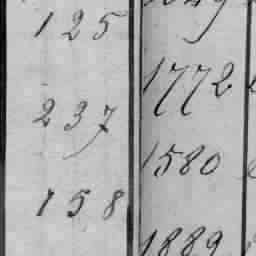 125
1772
237
1580
158
1889